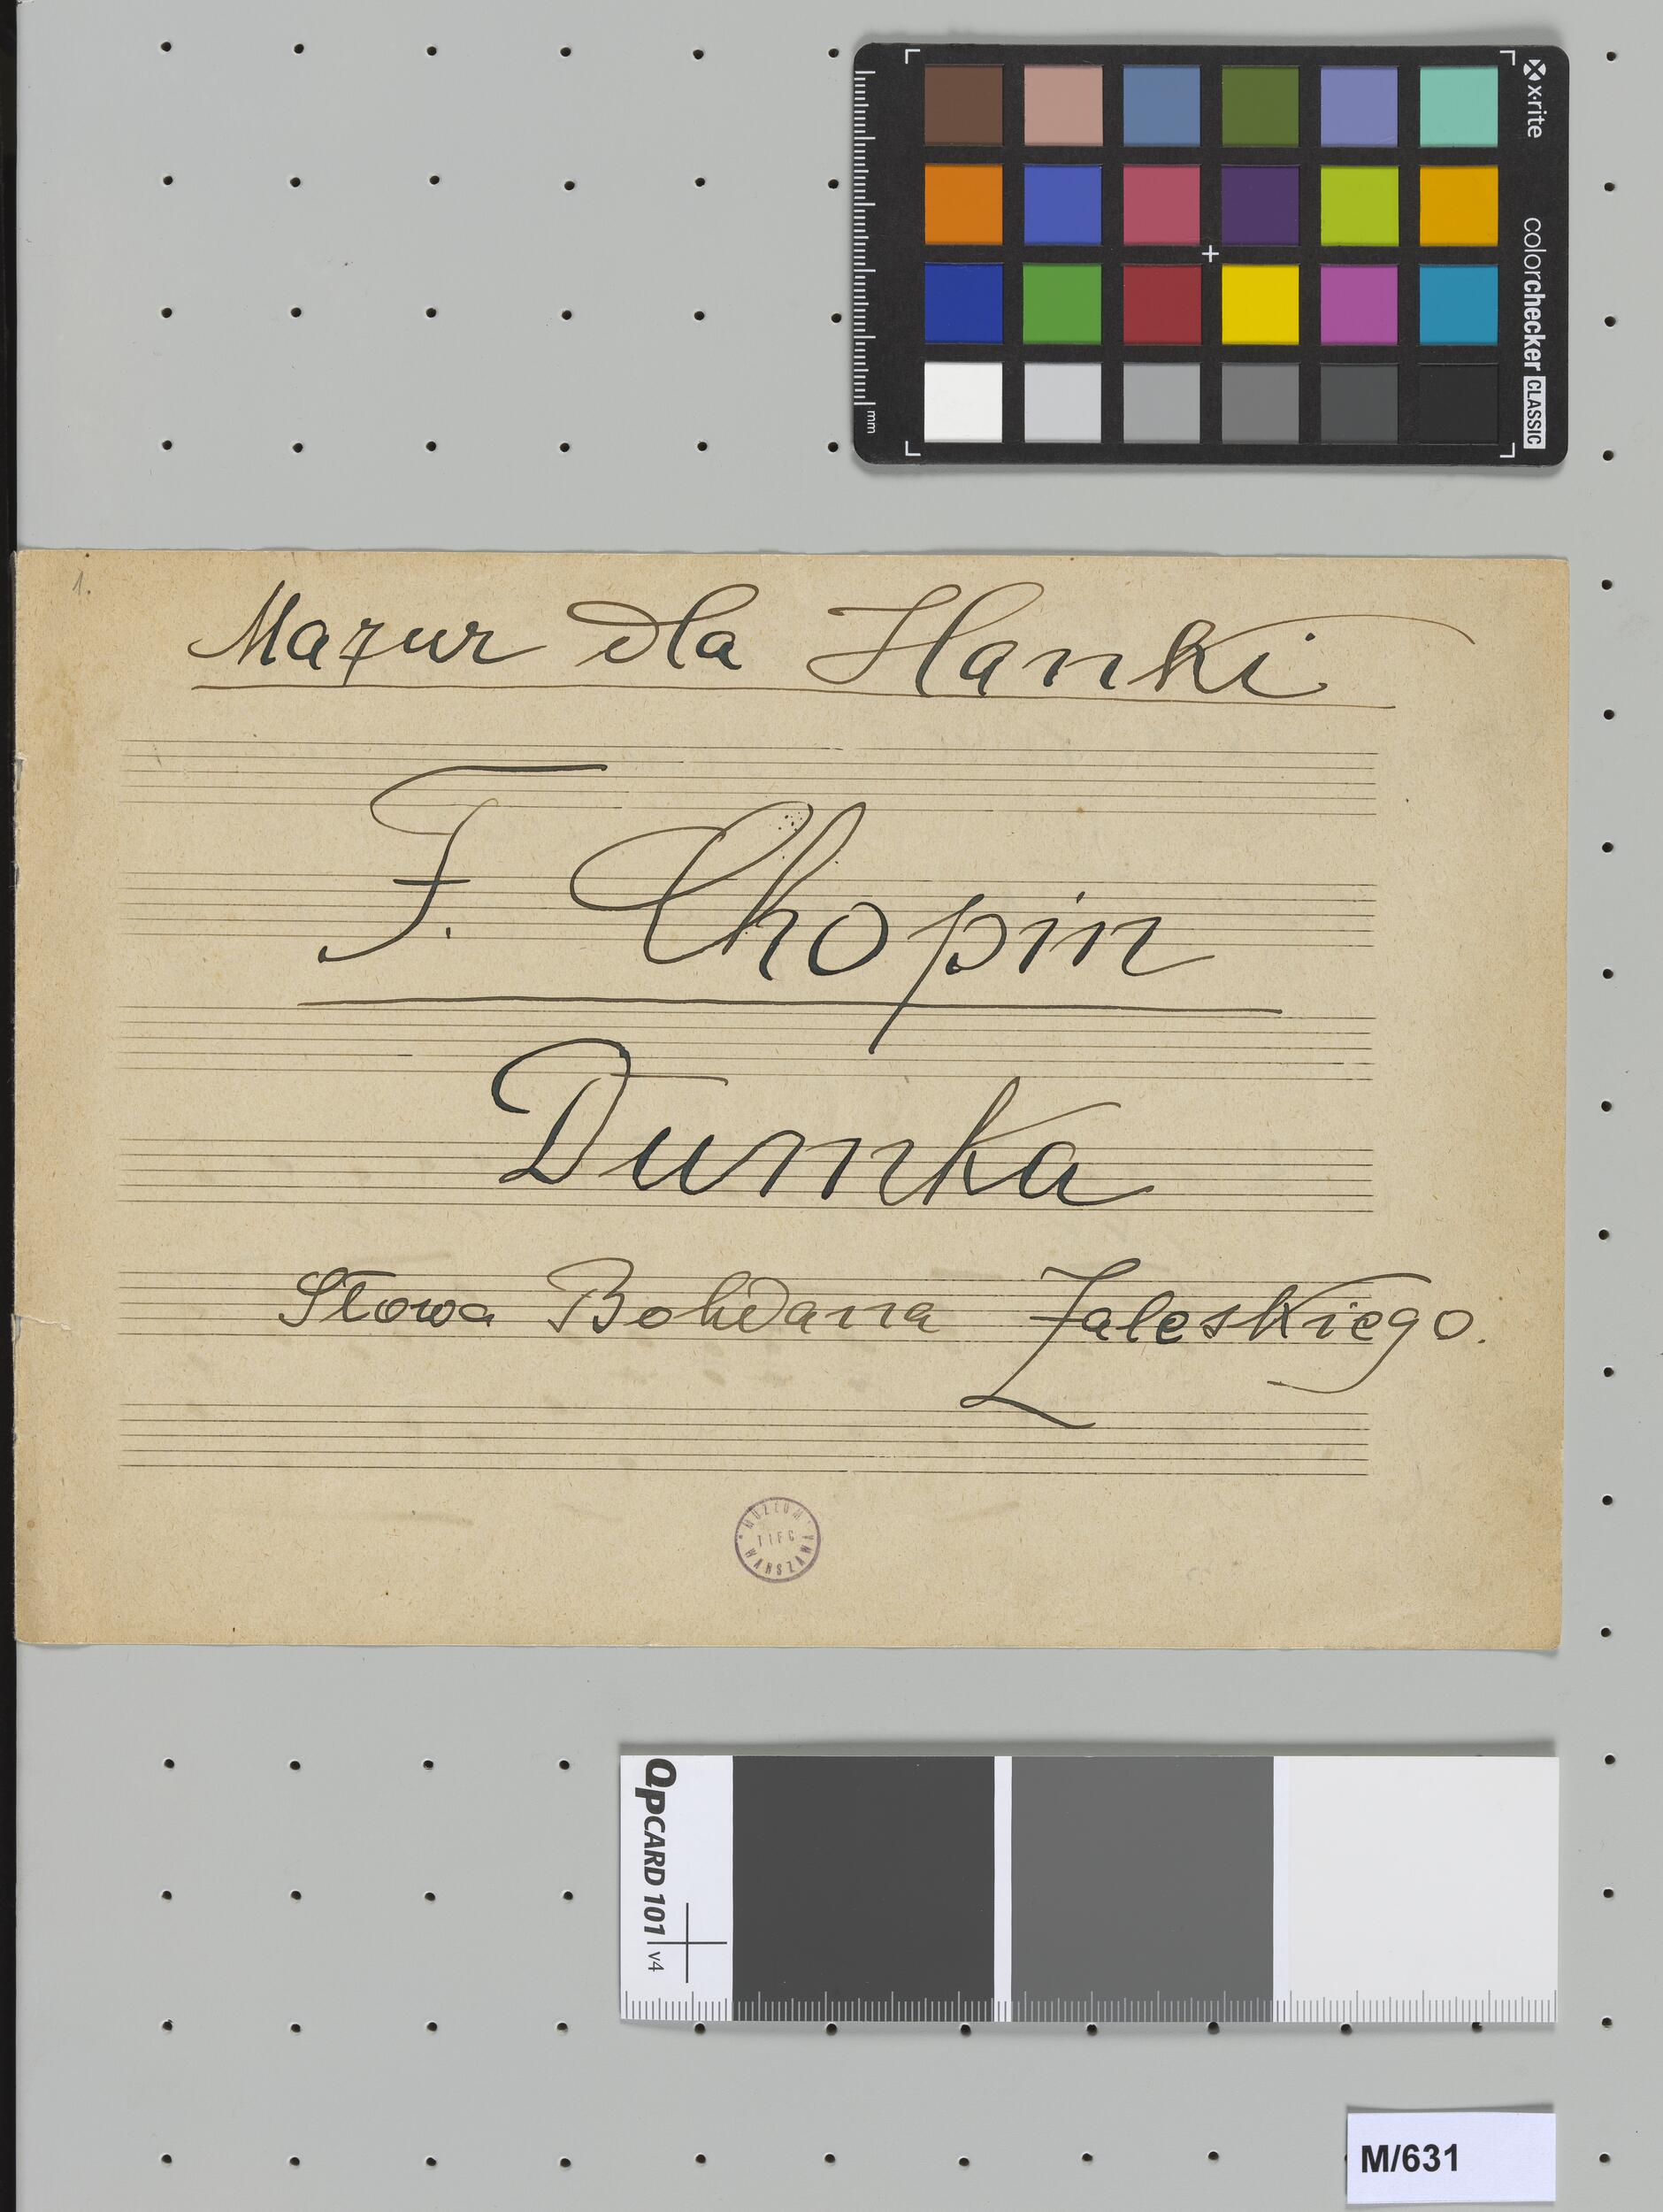 x-rite
colorchecker CLASSIC
mm
1.
Mazur dla Hanki
F. Chopin
Dumka
Słowa Bohdana Zaleskiego.
MUZEUM
TIFC
WARSZAWA
QPCARD 101 v4
M/631